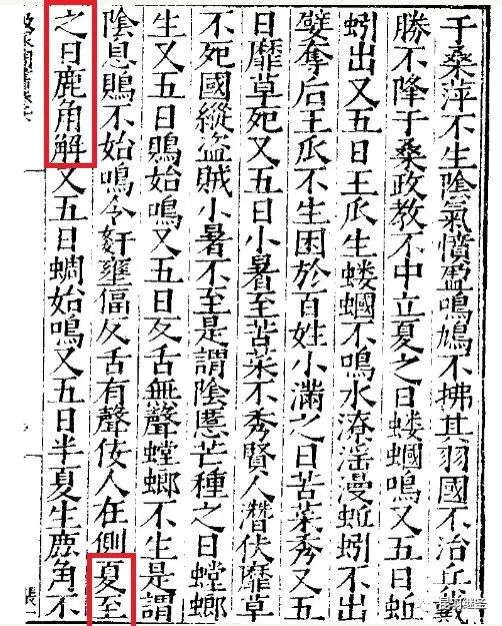 于桑萍不生陰氣憤盈鳴鳩不拂其羽國不治兵戴
勝不降于桑政教不中立夏之日螻蟈鳴又五日蚯
蚓出又五日王瓜生螻蟈不鳴水潦淫漫蚯蚓不出
嬖奪后王瓜不生困於百姓小滿之日苦菜秀又五
日靡草死又五日小暑至苦菜不秀賢人潛伏靡草
不死國縱盜賊小暑不至是謂陰慝芒種之日螳螂
生又五日鵙始鳴又五日反舌無聲螳螂不生是謂
陰息鵙不始鳴令姦壅偪反舌有聲佞人在側夏至
之日鹿角解又五日蜩始鳴又五日半夏生鹿角不